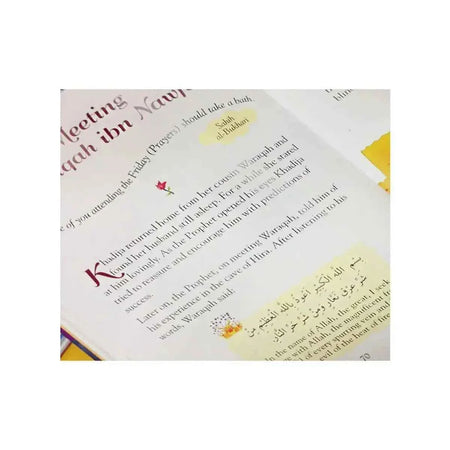 Meeting
qah ibn Nawf
e of you attending the Friday (Prayers) should take a bath.
Sahih
al-Bukhari
Khadija returned home from her cousin Waraqah and
found her husband still asleep. For a while she stared
at him lovingly. As the Prophet opened his eyes Khadija
tried to reassure and encourage him with predictions of
success.
Later on, the Prophet, on meeting Waraqah, told him of
his experience in the cave of Hira. After listening to his
words, Waraqah said:
بِسْمِ اللّٰهِ الْكَبِيْرِ اَعُوْذُ بِاللّٰهِ الْعَظِيْمِ مِنْ
شَرِّ عِرْقٍ نَعَّارٍ وَمِنْ شَرِّ حَرِّ النَّارِ
In the name of Allah, the great, I seek
with Allah, the magnificent f
of every spurting vein and f
evil of the heat of fire
70
blin